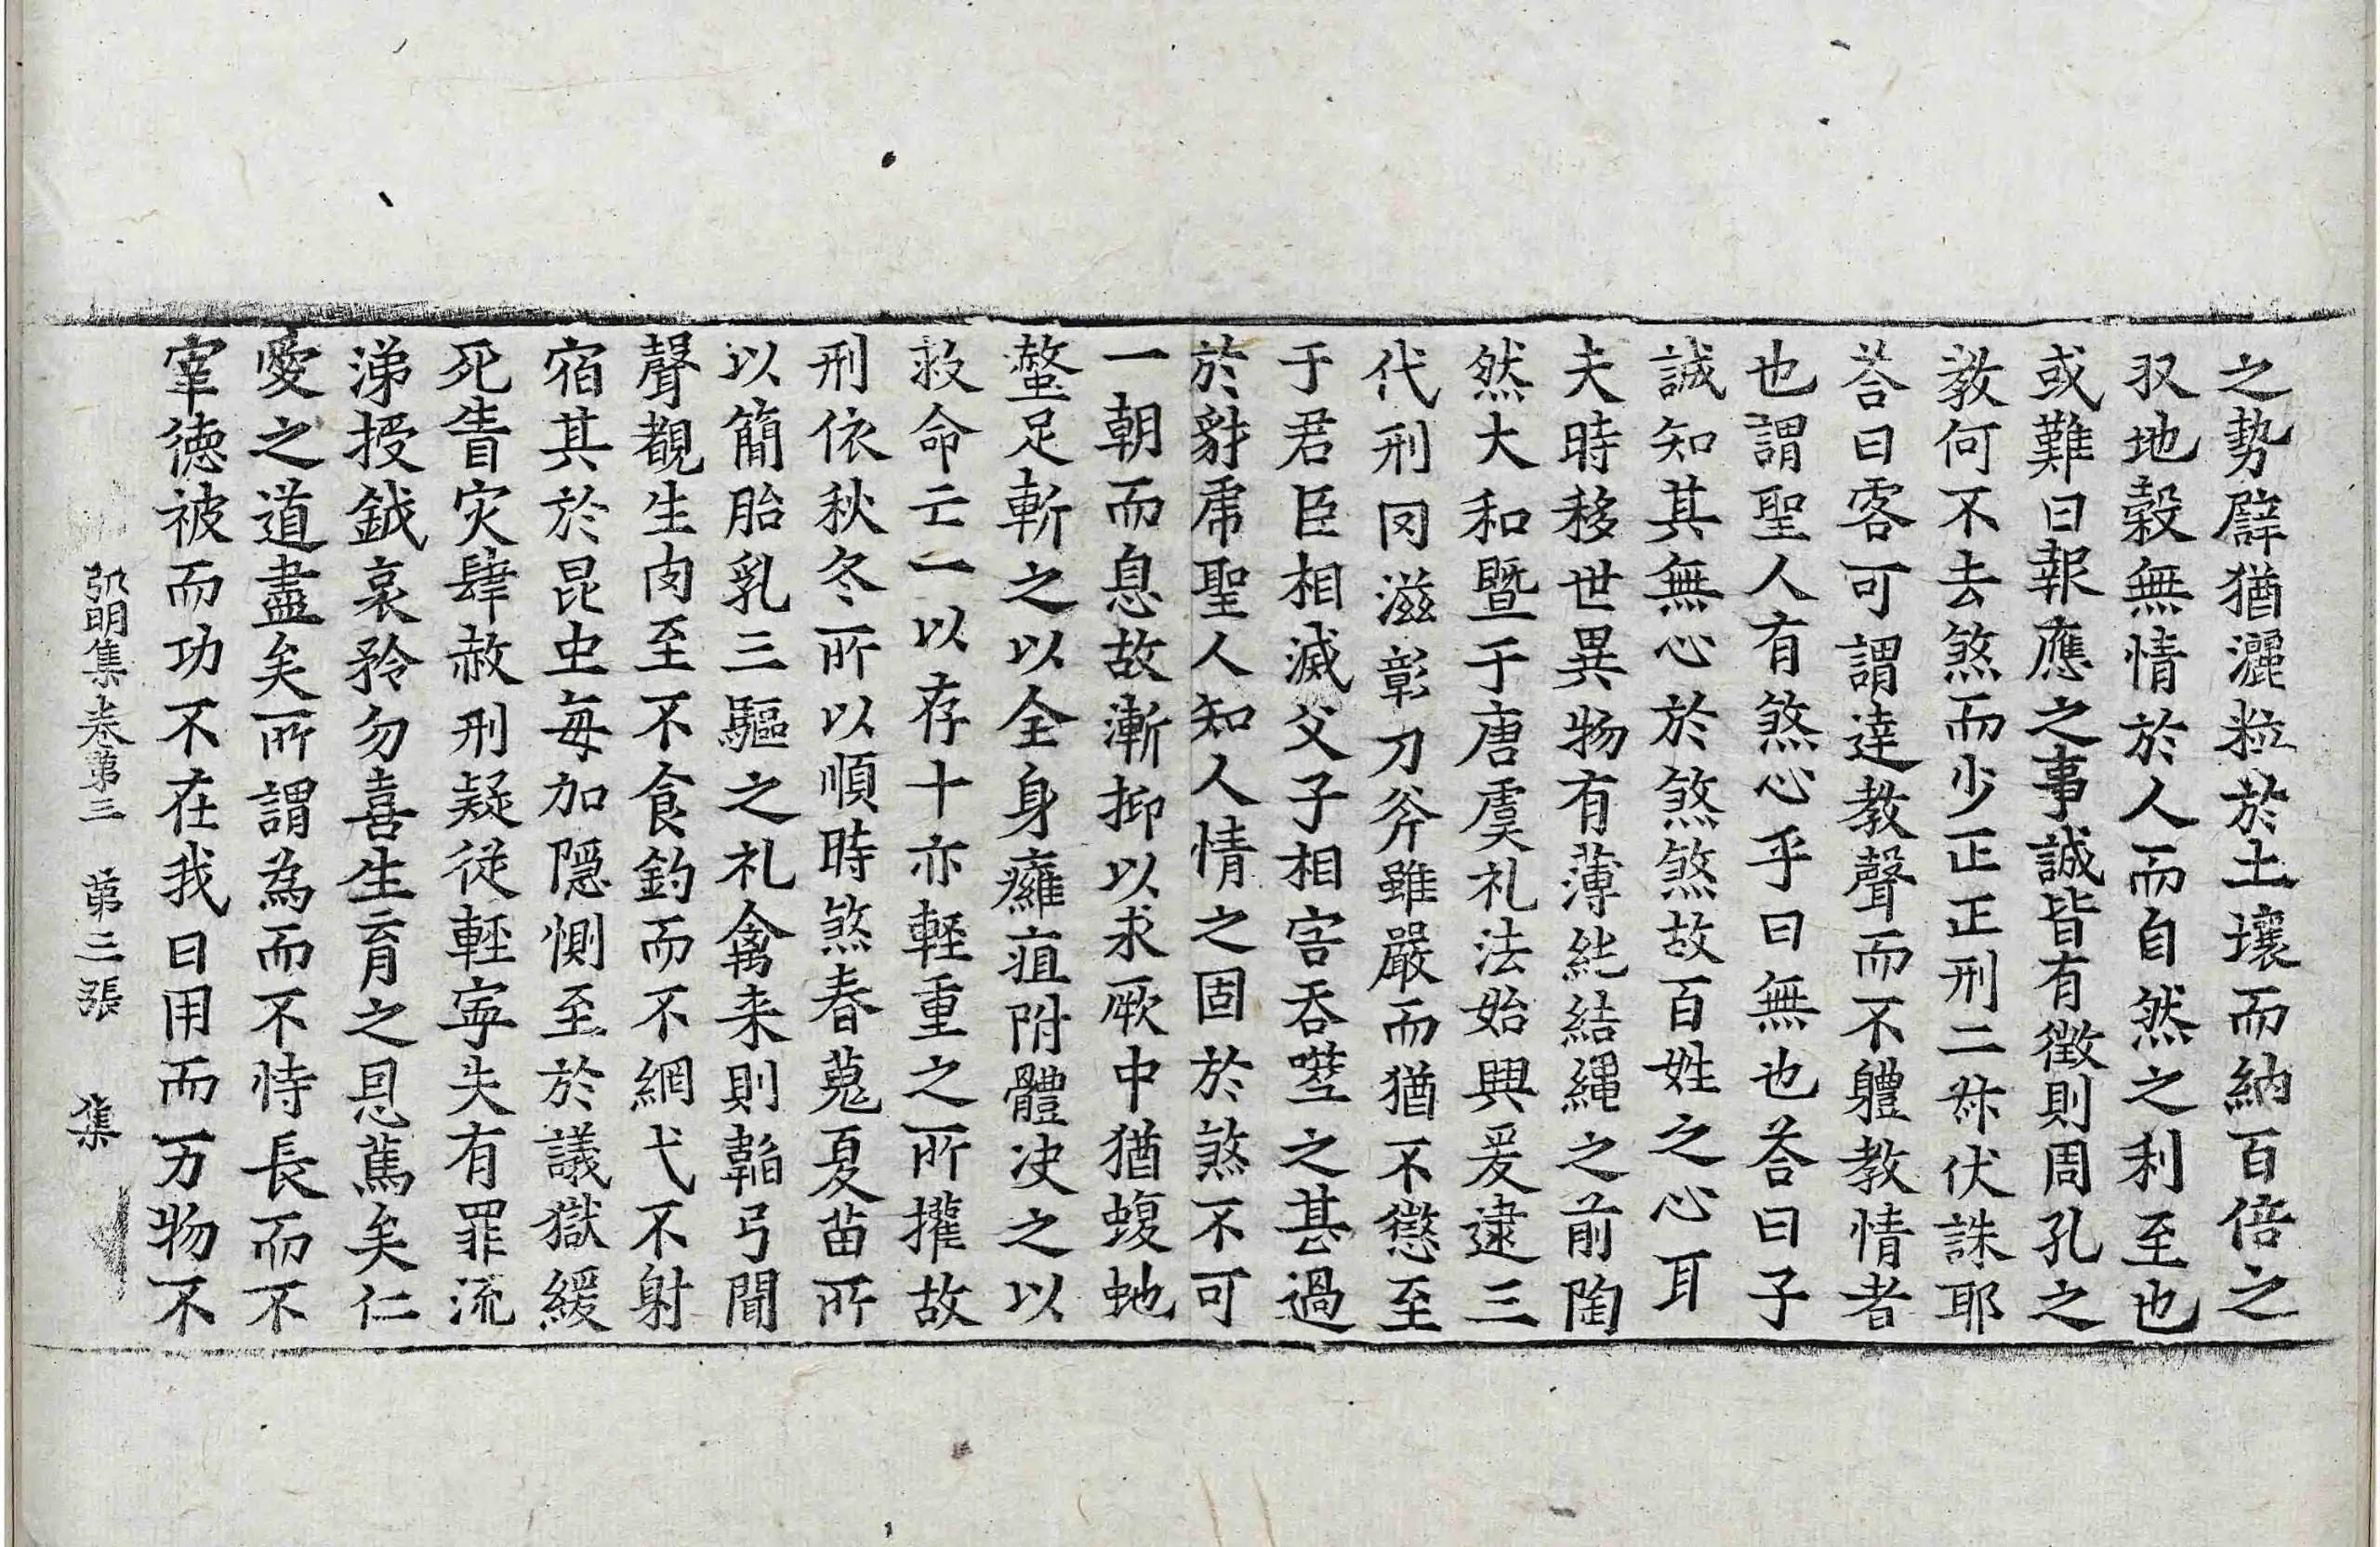 之勢辟猶灑粒於土壤而納百倍之
収地穀無情於人而自然之利至也
或難曰報應之事誠皆有徵則周孔之
教何不去煞而少正正刑二叔伏誅耶
荅曰客可謂達教聲而不軆教情者
也謂聖人有煞心乎曰無也荅曰子
誠知其無心於煞煞故百姓之心耳
夫時移世異物有薄純結繩之前陶
然大和暨于唐虞礼法始興爰逮三
代刑罔滋彰刀斧雖嚴而猶不懲至
于君臣相滅父子相害吞噬之甚過
於豺虎聖人知人情之固於煞不可
一朝而息故漸抑以求厥中猶蝮虵
螫足斬之以全身癰疽附體决之以
救命亡一以存十亦輕重之所權故
刑依秋冬所以順時煞春蒐夏苗所
以簡胎乳三驅之礼禽来則韜弓聞
聲覩生肉至不食釣而不網弋不射
宿其於昆虫每加隱惻至於議獄緩
死眚灾肆赦刑疑従輕寜失有罪流
涕授鉞哀矜勿喜生育之恩篤矣仁
愛之道盡矣所謂為而不恃長而不
宰德被而功不在我日用而万物不
弘明集卷第三 第三張 集